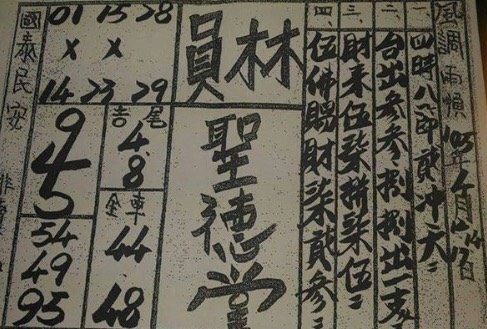 風調雨順 105年
一、四時八節貳冲天
台出參參捌捌出一支
三、財来伍柒拼柒伍
四、伍佛賜財柒貳參
林員
聖德堂
01 15 28
X X
14 23 29
吉尾
4.8
全車
44
48
9
4
5
54
49
95
國泰民安